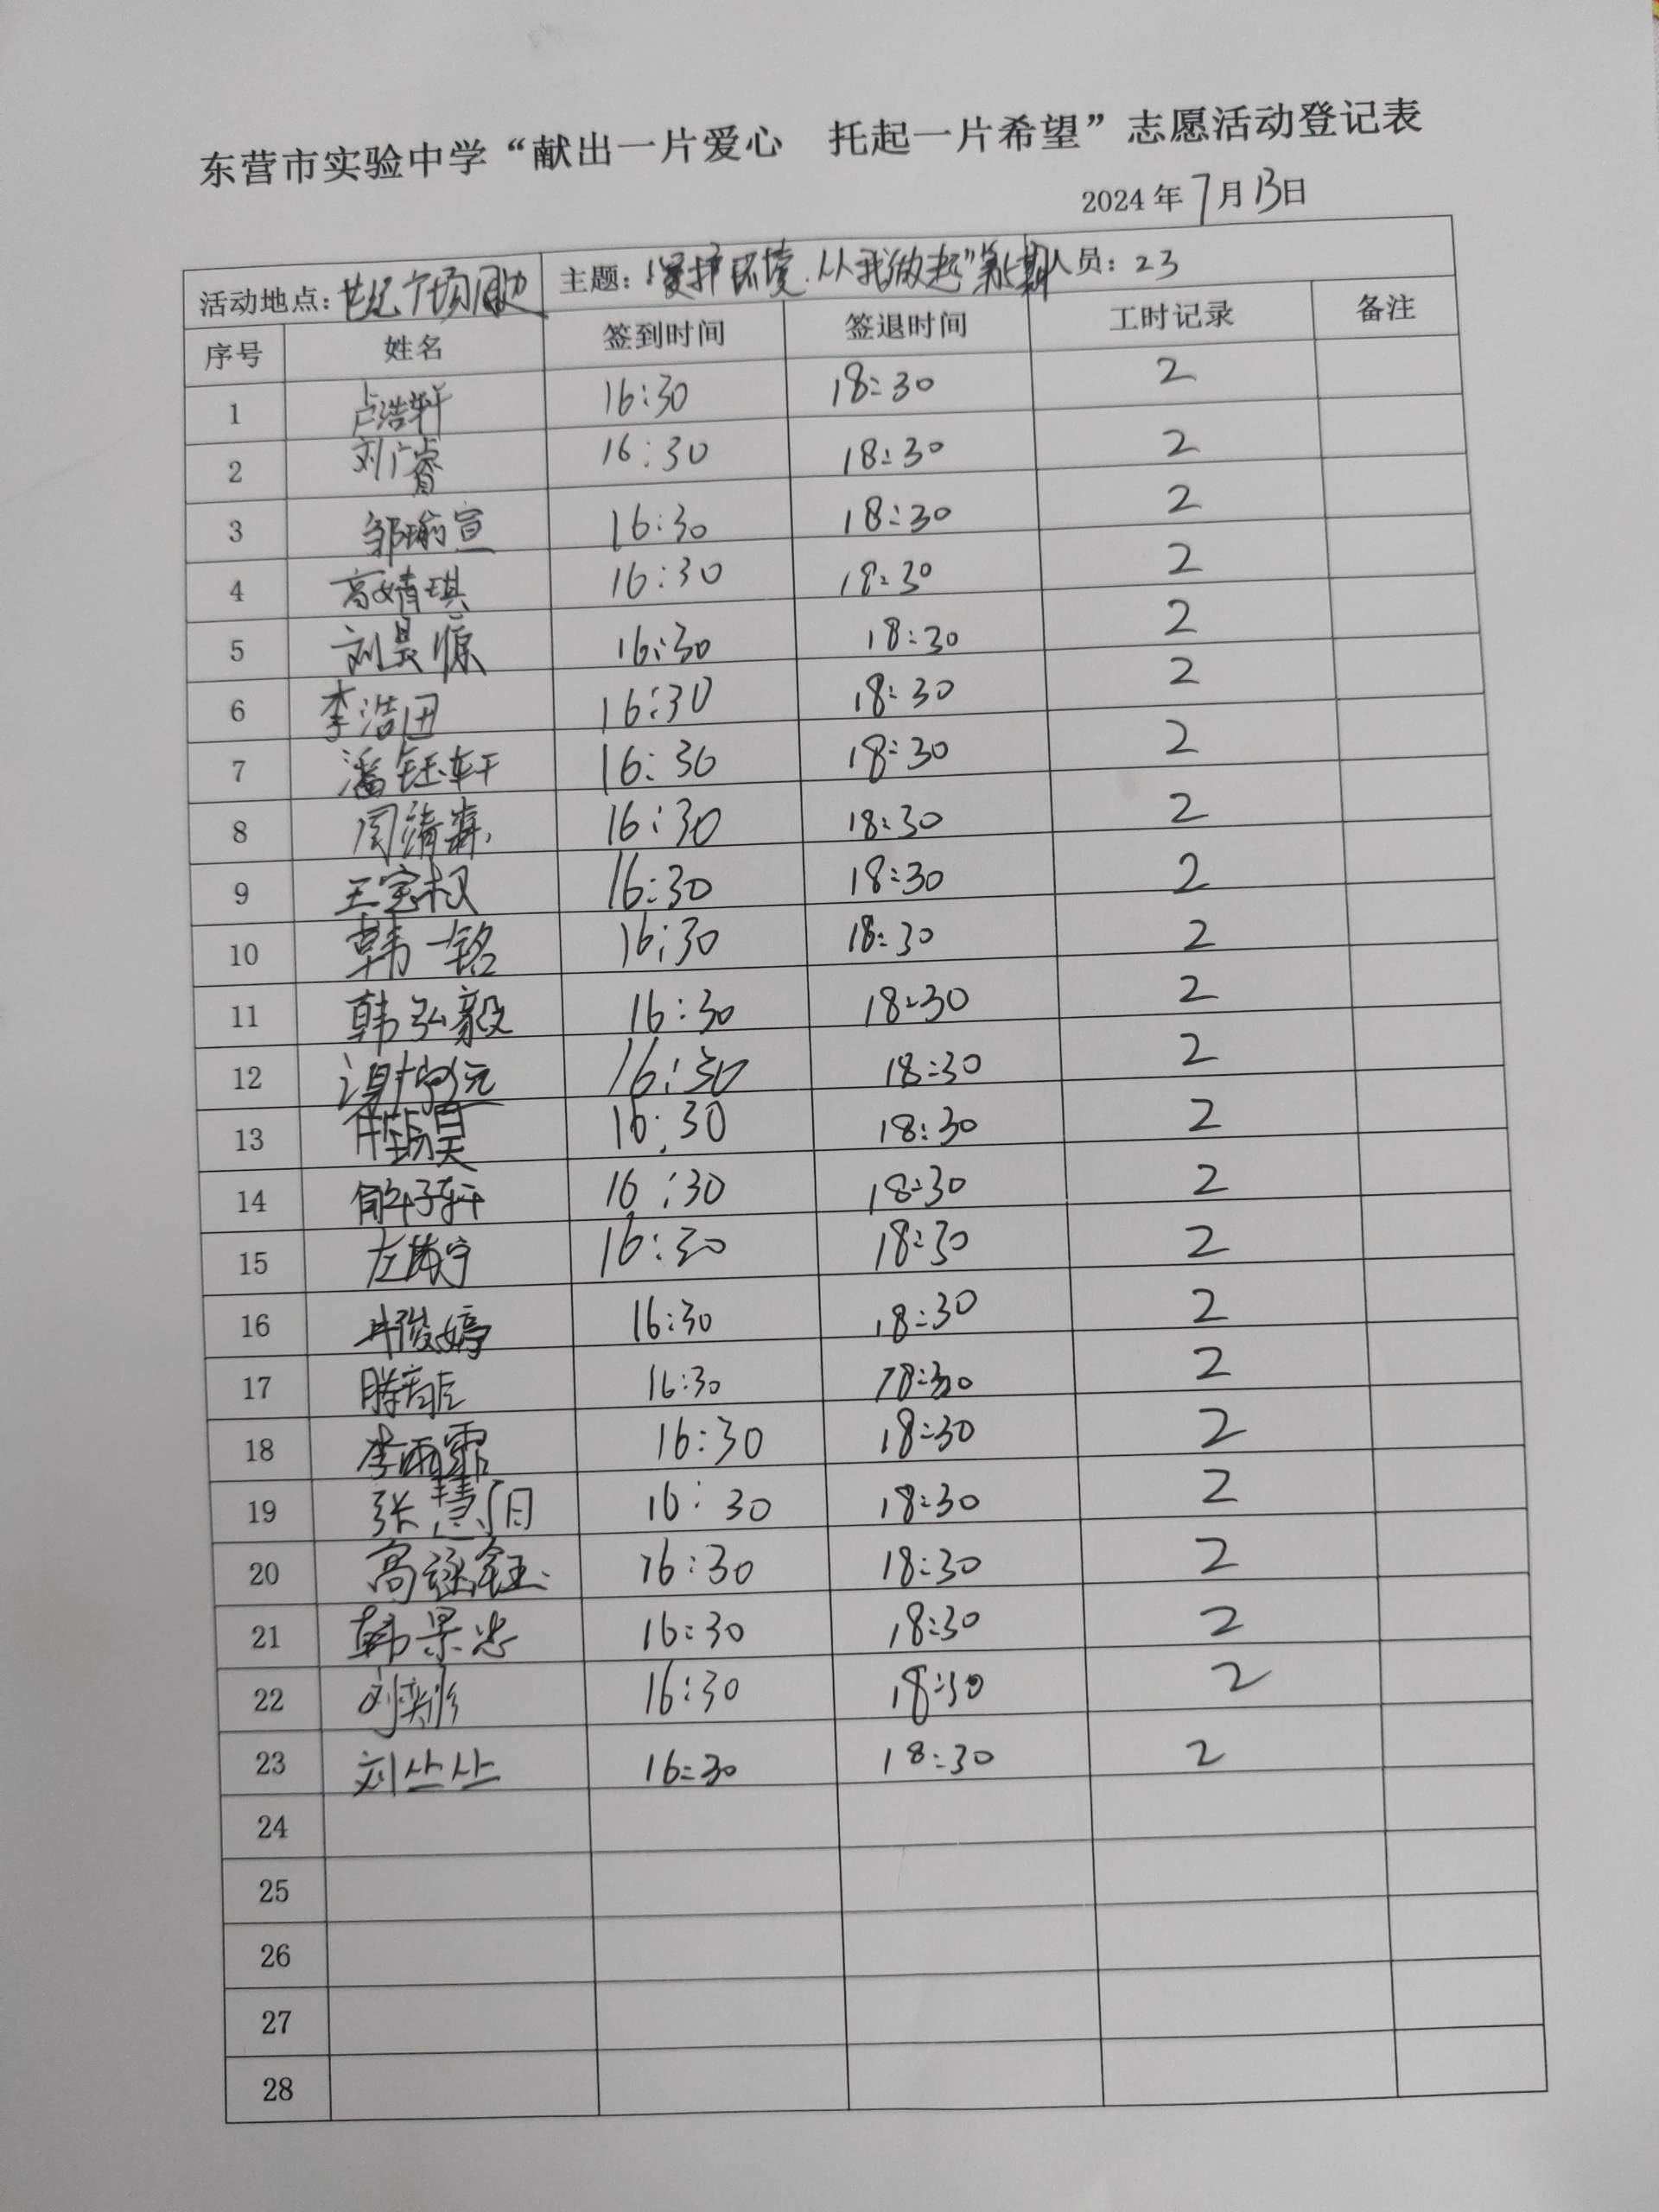 东营市实验中学“献出一片爱心 托起一片希望”志愿活动登记表
2024年7月13日
活动地点：世纪广场周边 主题：“爱护环境.从我做起” 人员：23
序号 姓名 签到时间 签退时间 工时记录 备注
1 卢浩轩 16:30 18:30 2
2 刘广睿 16:30 18:30 2
3 邹瑜宣 16:30 18:30 2
4 高婧琪 16:30 18:30 2
5 刘昊源 16:30 18:30 2
6 李浩田 16:30 18:30 2
7 潘钰轩 16:30 18:30 2
8 周清 16:30 18:30 2
9 王 权 16:30 18:30 2
10 韩一铭 16:30 18:30 2
11 韩弘毅 16:30 18:30 2
12 谢 元 16:30 18:30 2
13 昊 16:30 18:30 2
14 解子轩 16:30 18:30 2
15 左 宇 16:30 18:30 2
16 俊婷 16:30 18:30 2
17 16:30 18:30 2
18 李雨霏 16:30 18:30 2
19 张慧 16:30 18:30 2
20 高 钰 16:30 18:30 2
21 韩 16:30 18:30 2
22 刘奕彤 16:30 18:30 2
23 刘丛丛 16:30 18:30 2
24
25
26
27
28